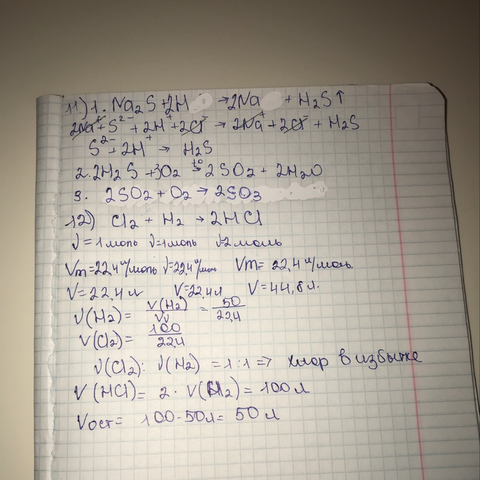 11) 1. Na2S + 2H → 2Na + H2S↑
2Na⁺ + S²⁻ + 2H⁺ + 2Cl⁻ → 2Na⁺ + 2Cl⁻ + H2S
S²⁻ + 2H⁺ → H2S
2. 2H2S + 3O2 →t° 2SO2 + 2H2O
3. 2SO2 + O2 → 2SO3
12) Cl2 + H2 → 2HCl
ν = 1 моль ν = 1 моль ν = 2 моль
Vm = 22,4 л/моль ν = 22,4 л/моль Vm = 22,4 л/моль
V = 22,4 л V = 22,4 л V = 44,8 л.
ν(H2) = V(H2) / = 50/22,4
ν(Cl2) = 100/22,4
ν(Cl2) : ν(H2) = 1:1 => Хлор в избытке
V(HCl) = 2 · V(H2) = 100 л
Vост = 100 - 50 л = 50 л